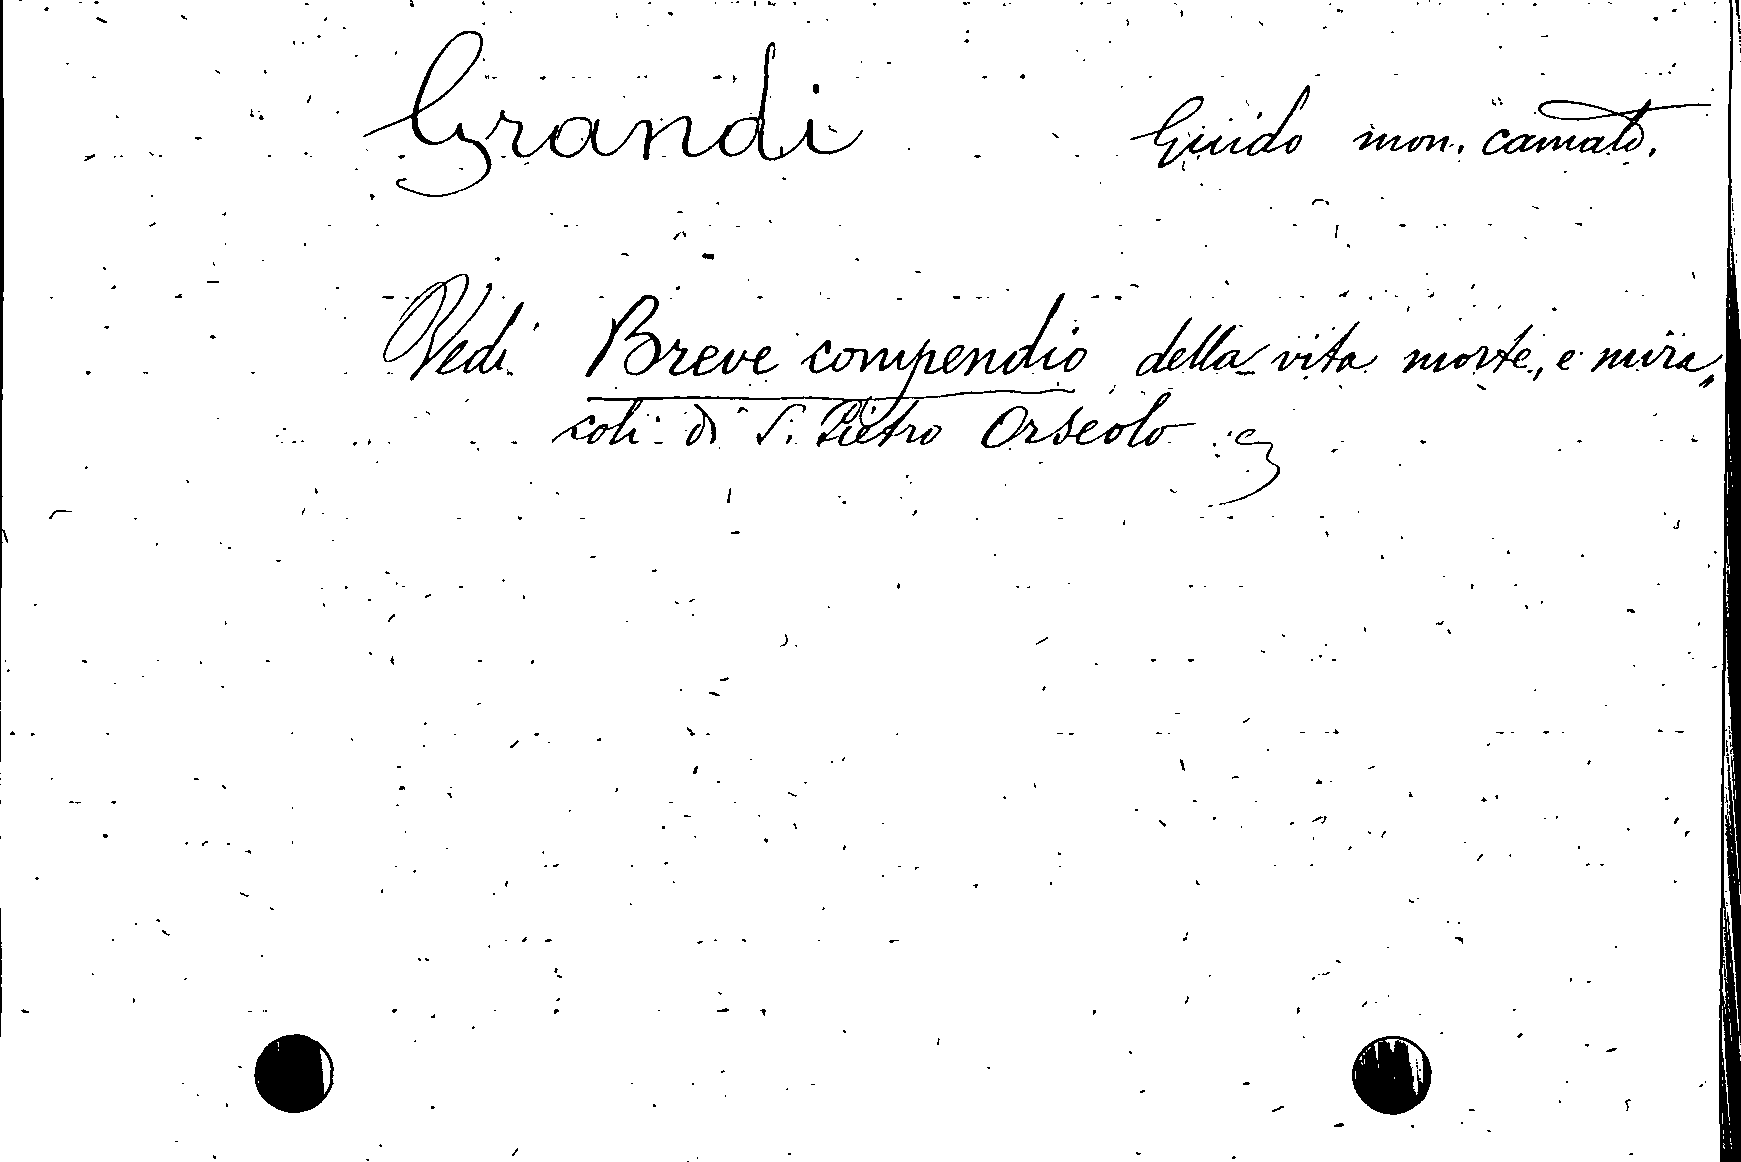 Grandi Guido mon. camald.
Vedi Breve compendio della vita morte, e mira„
coli di S. Pietro Orseolo